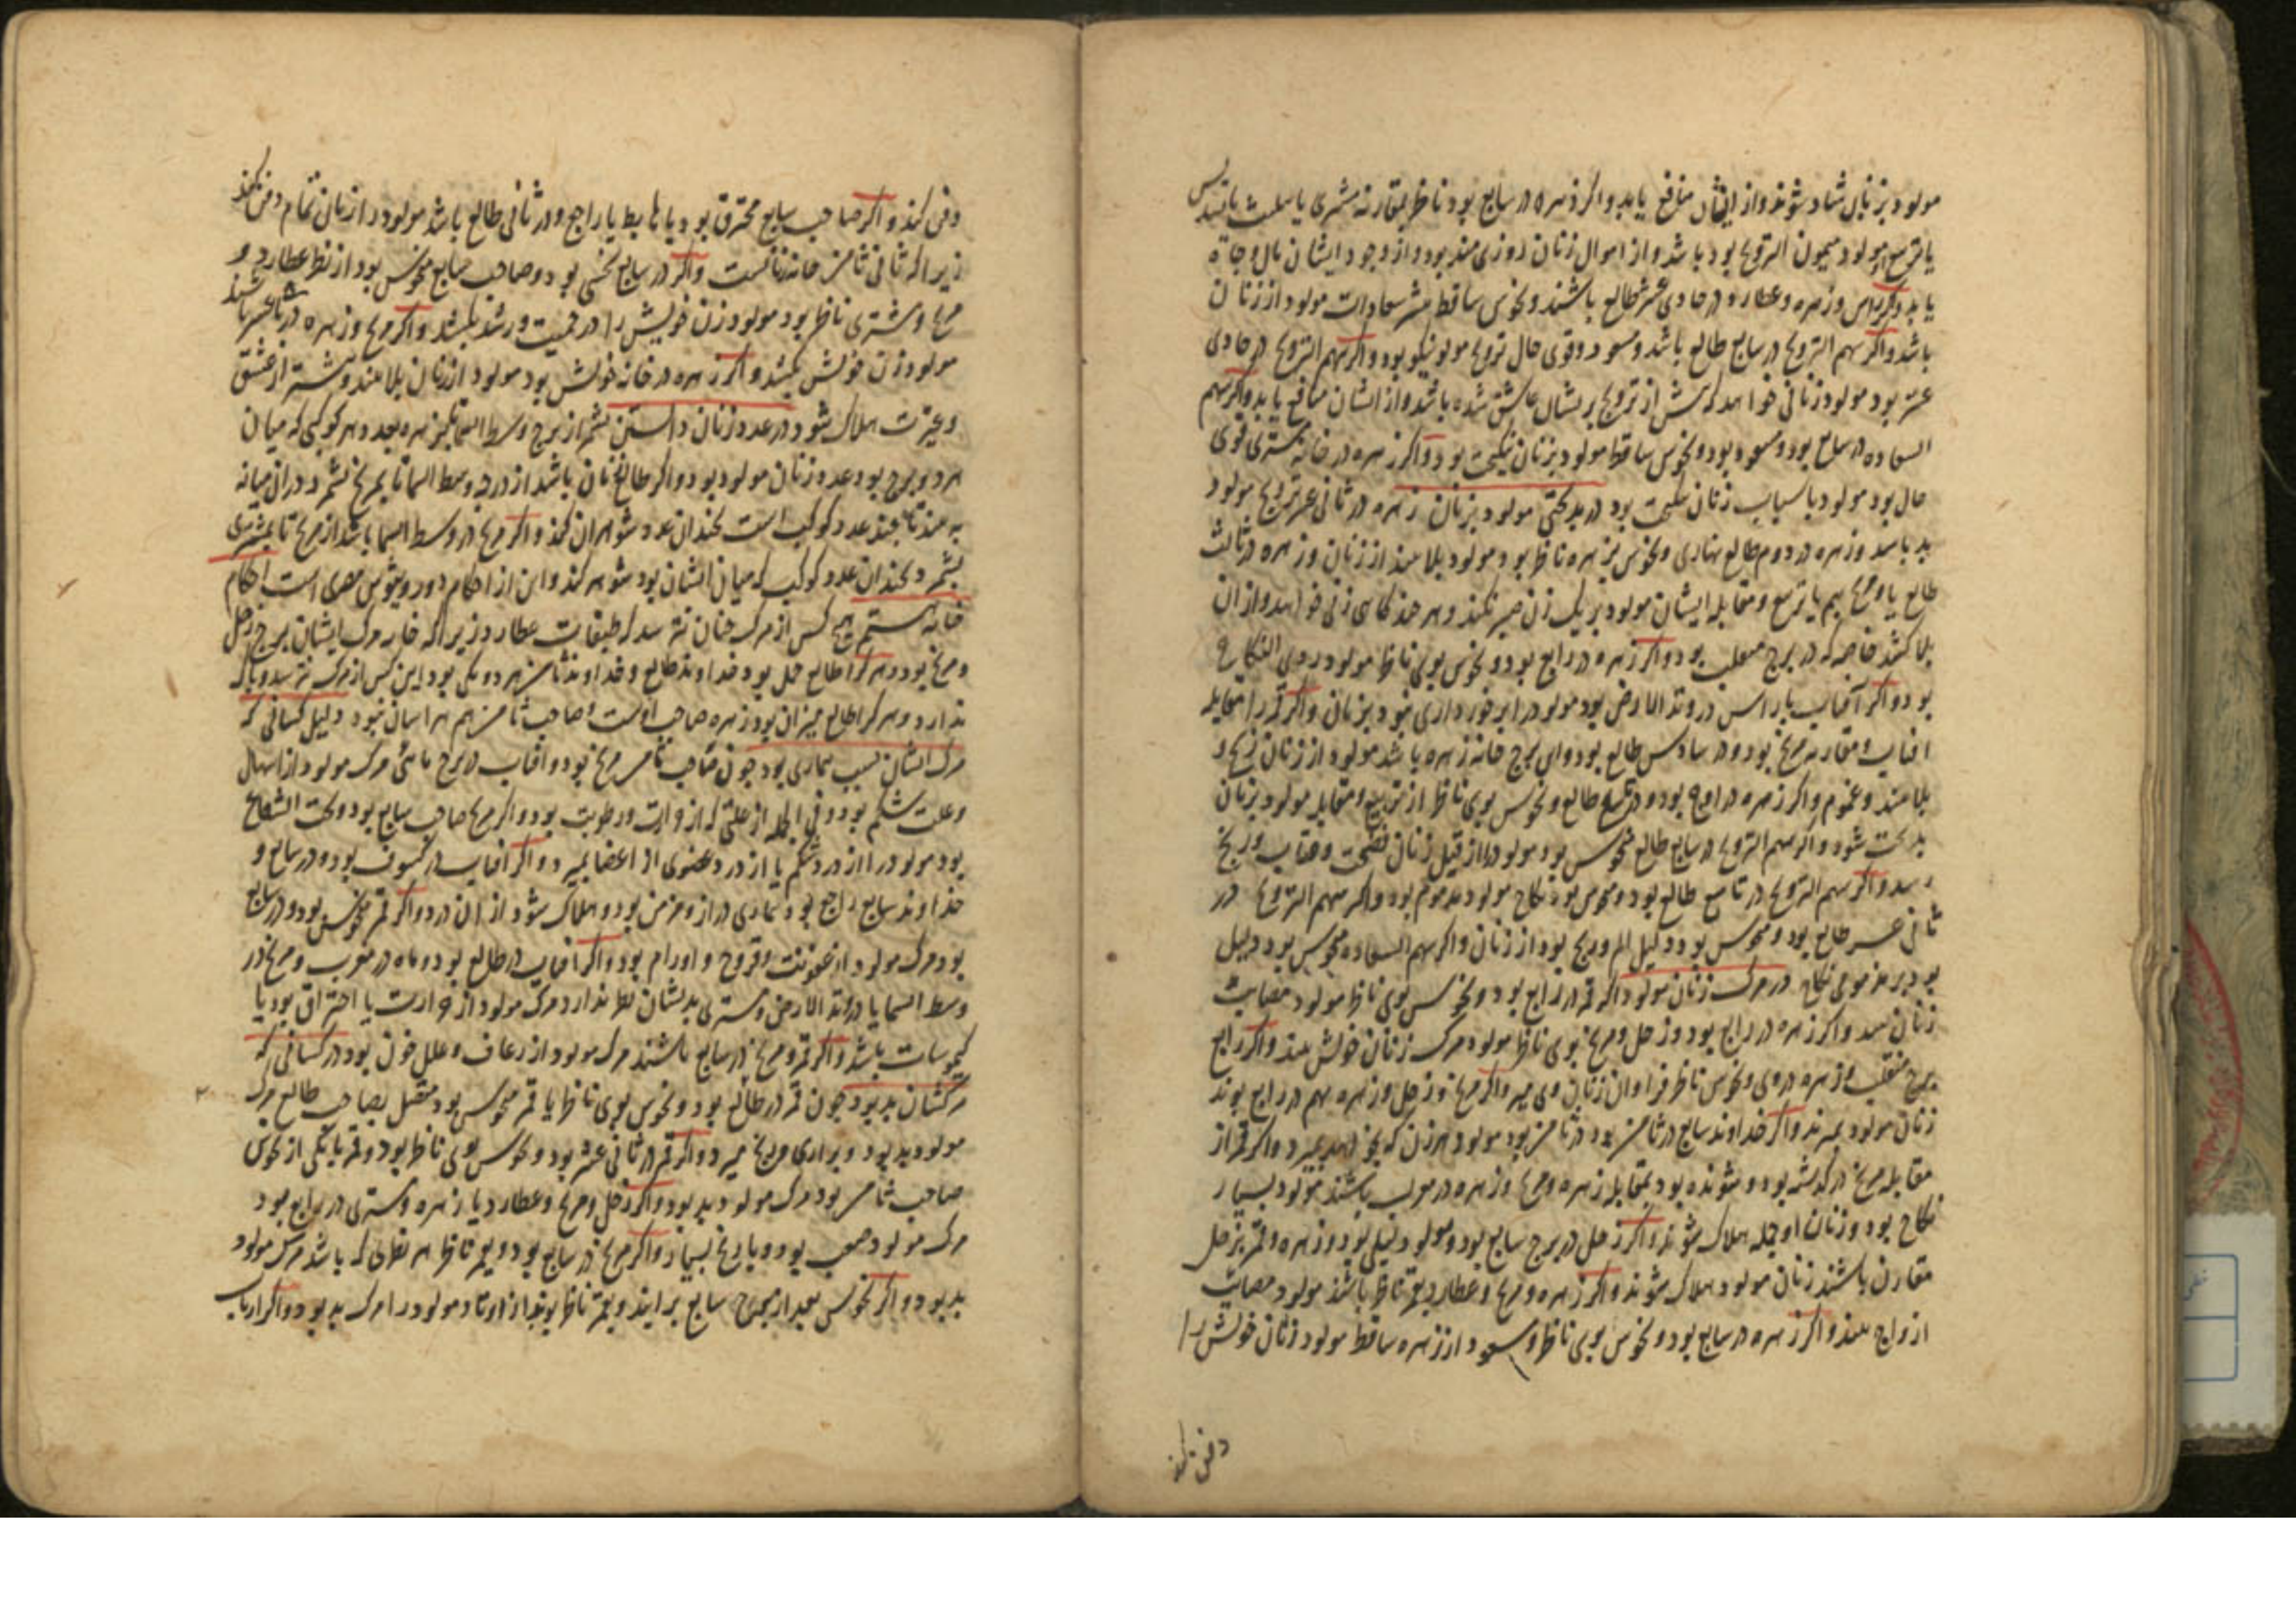 مولود بزنان شاد شوند و از ایشان منافع یابد و اگر زهره در سابع بود ناظر بمقارنه مشتری یا تثلیث یا تسدیس
یا تربیع مولود میمون التزویج بود باشد و از اموال زنان روزی مند بود و از وجود ایشان مال و جاه
یابد و اگر راس و زهره و عطارد در حادی عشر طالع باشند و نحوس ساقط سعادات مولود از زنان
باشد و اگر سهم التزویج در سابع طالع باشد و مسعود و قوی حال تزویج مولود نیکو بود و اگر سهم التزویج در حادی
عشر بود مولود زنانی خواهد که پیش از تزویج بریشان عاشق شده باشد و از ایشان منافع یابد و اگر سهم
السعاده در سابع بود و مسعود بود و نحوس ساقط مولود بزنان نیکبخت بود و اگر زهره در خانه مشتری قوی
حال بود مولود باسباب زنان بود در بدبختی مولود بزنان زهره در ثانی عشر تزویج مولود
بد باشد و زهره در دوم طالع و نحوس بزهره ناظر بود مولود بلا بیند از زنان و زهره در ثالث
طالع با مریخ بهم یا تربیع و مقابله ایشان مولود بر یک زن صبر نکند و هر چند گاهی زنی خواهد و از آن
بلا کشد خاصه که در برج منقلب بود و اگر زهره در رابع بود و نحوس بوی ناظر مولود ردی النکاح
بود و اگر آفتاب با راس در وتد الارض بود مولود را برخورداری نبود بزنان و اگر قمر را مقابله
آفتاب و مقارنه مریخ بود و در سادس طالع بود و این برج خانه زهره باشد مولود از زنان رنج و
بلا بیند و غموم و اگر زهره در اوج بود و در تاسع طالع و نحوس بوی ناظر از تربیع و مقابله مولود بزنان
بدبخت شود و اگر سهم التزویج در سابع طالع منحوس بود مولود را از قبل زنان فضیحت و عتاب و رنج
رسد و اگر سهم التزویج در تاسع طالع بود و منحوس بود نکاح مولود مذموم بود و اگر سهم التزویج در
ثانی عشر طالع بود و منحوس بود دلیل الم و رنج بود از زنان و اگر سهم السعاده منحوس بود دلیل
بود بر مذمومی نکاح در مرگ زنان مولود اگر قمر در رابع بود و نحوس بوی ناظر مولود مصایب
زنان بیند و اگر زهره در رابع بود و زحل و مریخ بوی ناظر مولود مرگ زنان خویش بیند و اگر رابع
برج منقلب و زهره در وی و نحوس ناظر فراوان زنان وی میرد و اگر مریخ و زحل و زهره بهم در رابع بوند
زنان مولود بمیرند و اگر خداوند سابع در ثامن بود مولود هر زن که بخواهد بمیرد و اگر قمر از
مقابله مریخ درگذشته بود و شونده بود بمقابله زهره و مریخ و زهره در مغرب باشند مولود بسیار
نکاح بود و زنان او جمله هلاک شوند و اگر زحل در برج سابع بود و مولود لیلی بود و زهره و قمر بزحل
مقارن باشند زنان مولود هلاک شوند و اگر زهره و مریخ و عطارد بقمر ناظر باشند مولود مصایب
ازواج بیند و اگر زهره در سابع بود و نحوس بوی ناظر و سعود از زهره ساقط مولود زنان خویش را
دفن کند
دفن کند و اگر صاحب سابع محترق بود یا هابط یا راجع و در ثانی طالع باشد مولود را زنان تمام دفن کند
زیرا که ثانی ثامن خانه زنانست و اگر در سابع نحسی بود و صاحب سابع منحوس بود از نظر عطارد و
مریخ و مشتری ناظر بود مولود زن خویش را در حمیت و رشک بکشد و اگر مریخ و زهره در عاشر باشند
مولود زن خویش بکشد و اگر زهره در خانه خویش بود مولود از زنان بلا بیند و بیشتر از عشق
و غیرت هلاک شود در عدد زنان داستن بشمر از برج وسط السما بزهره بعد و هر کوکبی که میان
هر دو برج بود عدد زنان مولود بود و اگر طالع زنان باشد از درجه وسط السما تا بمریخ بشمرد در آن میانه
به بیند تا چند عدد کوکب است چندان عدد شوهران کند و اگر مریخ در وسط السما باشد از مریخ تا بمشتری
بشمرد چندان عدد کوکب که میان ایشان بود شوهر کند و این از احکام دورویثوس مصری است احکام
خانه هشتم هیچ کس از مرگ چنان نترسد که طبقات عطارد زیرا که خانه مرگ ایشان برج زحل
و مریخ بود و هر که را طالع حمل بود خداوند طالع و خداوند ثامن هر دو یکی بود این کس از مرگ نترسد و باک
ندارد و هر که را طالع میزان بود زهره صاحب اوست و صاحب ثامن هم هراسان نبود دلیل کسانی که
مرگ ایشان بسبب بیماری بود چون صاحب ثامن مریخ بود و آفتاب در برج مائی مرگ مولود از اسهال
و علت شکم بود و فی الجمله از علتی که از و رطوبت بود و اگر مریخ صاحب سابع بود و تحت الشعاع
بود مولود را از درد شکم یا از درد عضوی از اعضا بمیرد و اگر آفتاب در کسوف بود و در سابع و
خداوند سابع راجع بود بیماری دراز و مزمن بود و هلاک شود از آن درد و اگر قمر منحوس بود و در سابع
بود مرگ مولود از عفونت و قروح و اورام بود و اگر آفتاب در طالع بود و ماه در مغرب و مریخ در
وسط السما یا در وتد الارض و مشتری بدیشان نظر ندارد مرگ مولود از حرارت یا احتراق بود یا
کیموسات باشد و اگر قمر و مریخ در سابع باشند مرگ مولود از رعاف و علل خون بود در کسانی که
مرگشان بد بود چون قمر در طالع بود و نحوس بوی ناظر یا قمر منحوس بود متصل بصاحب طالع مرگ
مولود بد بود و بزاری و رنج میرد و اگر قمر در ثانی عشر بود و نحوس بوی ناظر بود و قمر با یکی از نحوس
صاحب ثامن بود مرگ مولود بد بود و اگر زحل و مریخ و عطارد یا زهره و مشتری در رابع بود
مرگ مولود صعب بود و با رنج بسیار و اگر مریخ در سابع بود و بقمر ناظر هر نظری که باشد مرگ مولود
بد بود و اگر نحوس بعد از سابع برآیند و بقمر ناظر بوند از اوتاد مولود را مرگ بد بود و اگر ارباب